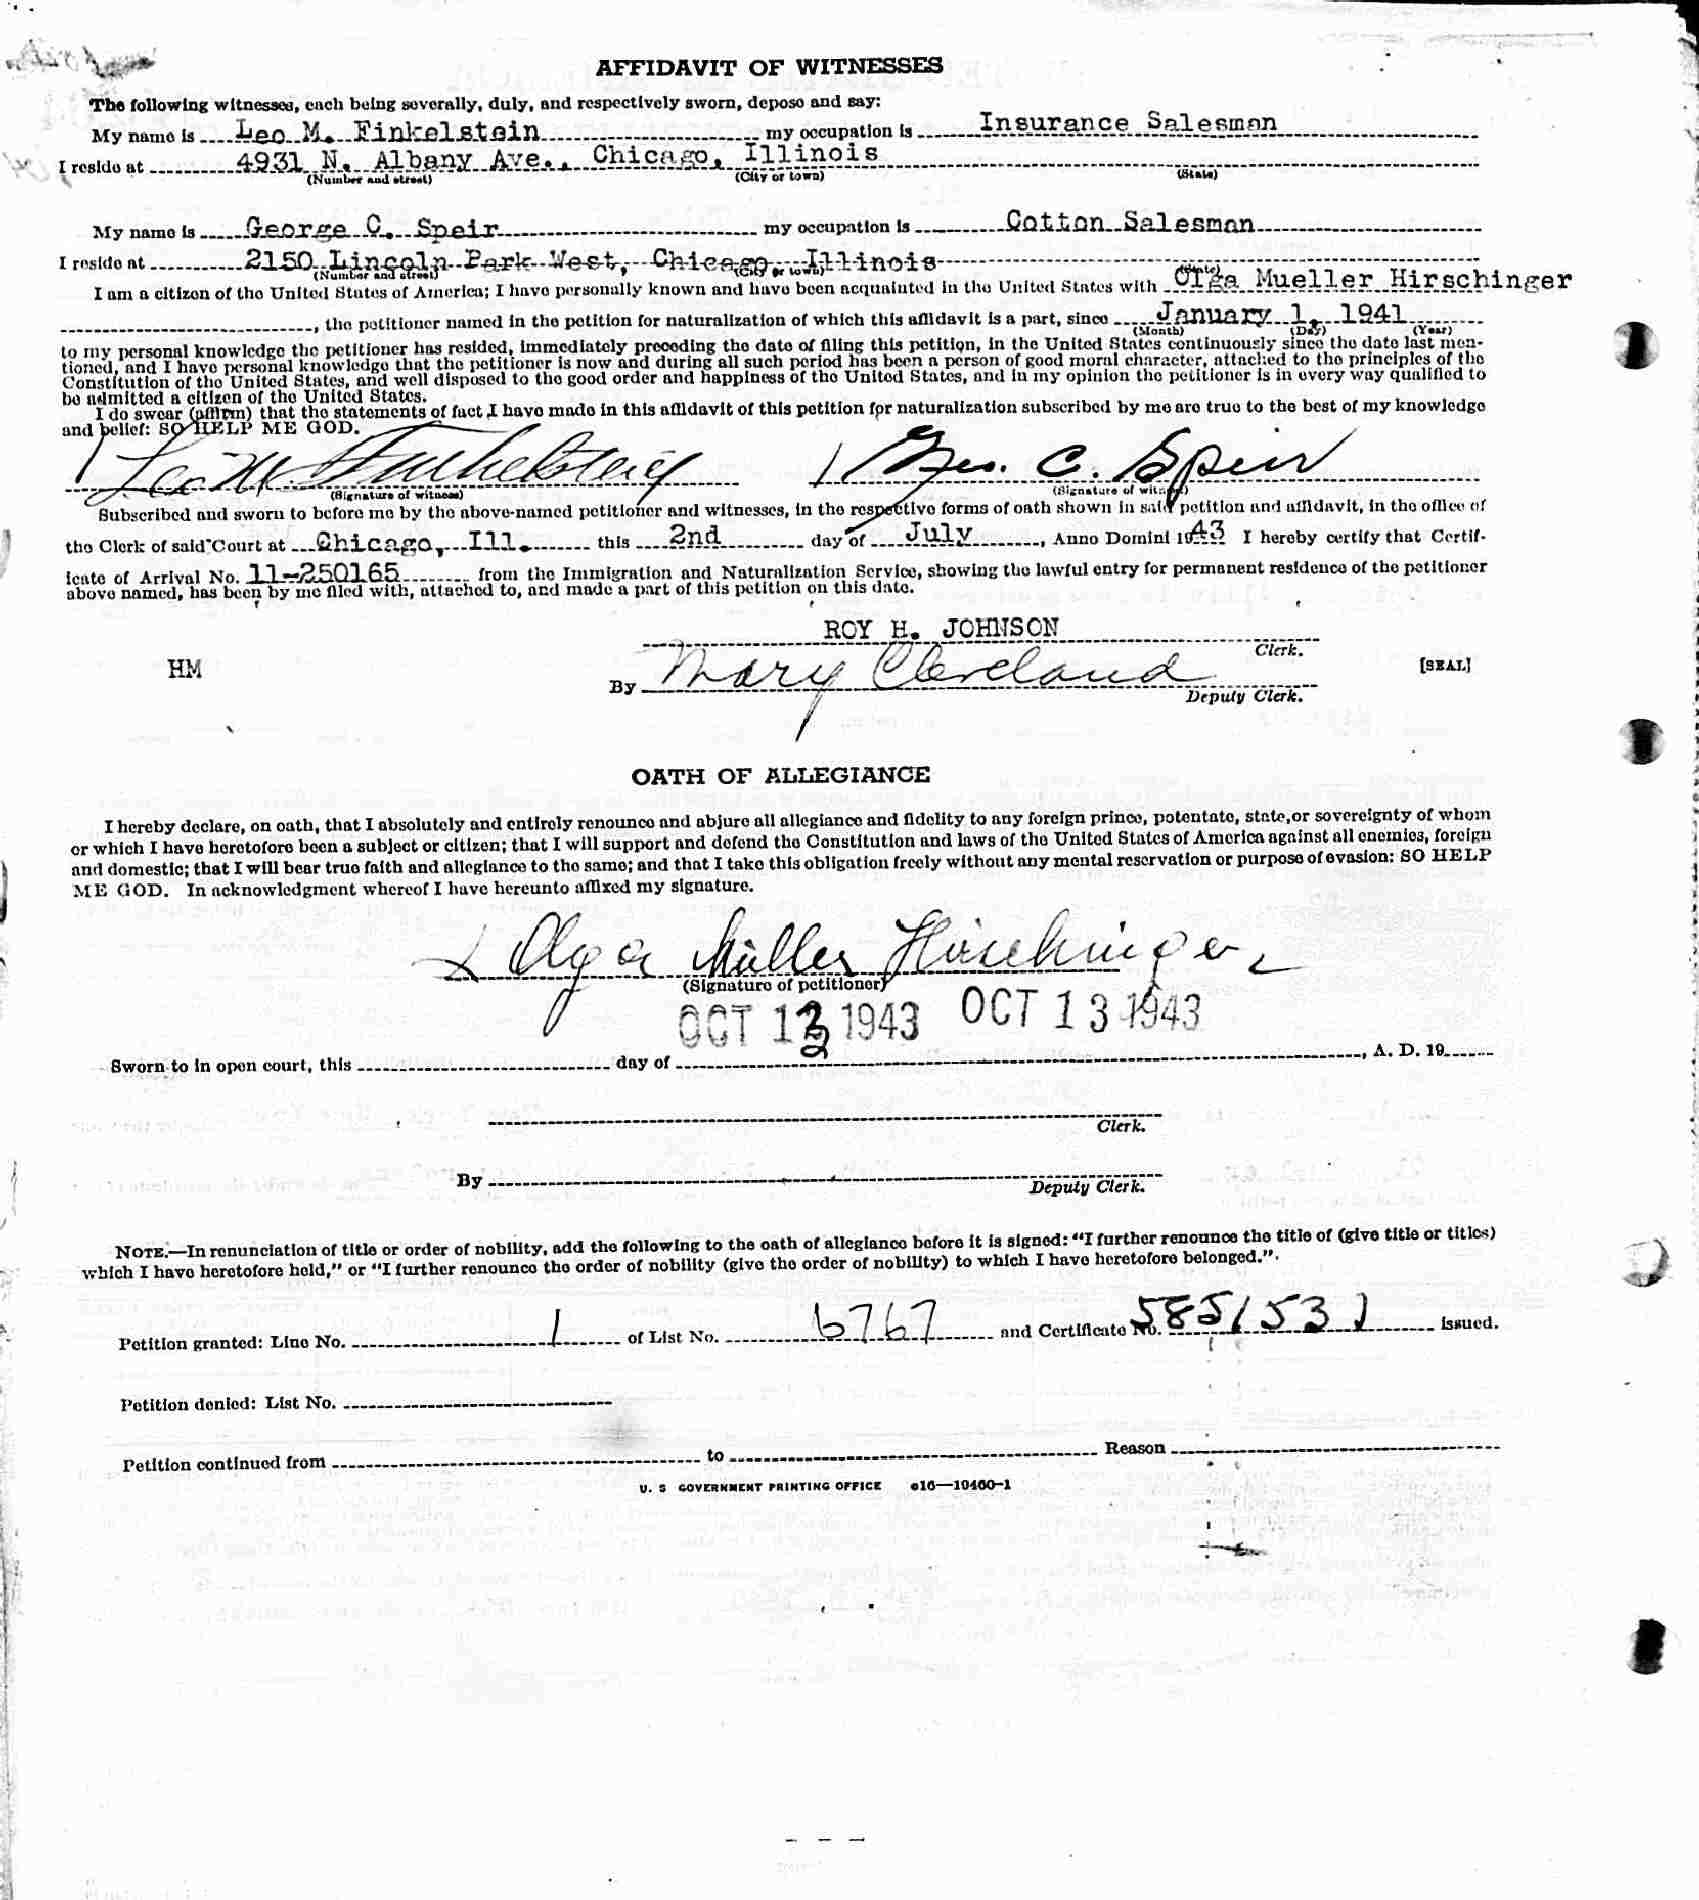 AFFIDAVIT OF WITNESSES
The following witnesses, each being severally, duly, and respectively sworn, depose and say:
My name is Leo M. Finkelstein my occupation is Insurance Salesman
I reside at 4931 N. Albany Ave., Chicago, Illinois
(Number and street) (City or town) (State)
My name is George C. Speir my occupation is Cotton Salesman
I reside at 2150 Lincoln Park West, Chicago, Illinois
(Number and street) (City or town) (State)
I am a citizen of the United States of America; I have personally known and have been acquainted in the United States with Olga Mueller Hirschinger
, the petitioner named in the petition for naturalization of which this affidavit is a part, since January 1, 1941
(Month) (Day) (Year)
to my personal knowledge the petitioner has resided, immediately preceding the date of filing this petition, in the United States continuously since the date last men-
tioned, and I have personal knowledge that the petitioner is now and during all such period has been a person of good moral character, attached to the principles of the
Constitution of the United States, and well disposed to the good order and happiness of the United States, and in my opinion the petitioner is in every way qualified to
be admitted a citizen of the United States.
I do swear (affirm) that the statements of fact I have made in this affidavit of this petition for naturalization subscribed by me are true to the best of my knowledge
and belief: SO HELP ME GOD.
Leo M. Finkelstein Geo. C. Speir
(Signature of witness) (Signature of witness)
Subscribed and sworn to before me by the above-named petitioner and witnesses, in the respective forms of oath shown in said petition and affidavit, in the office of
the Clerk of said Court at Chicago, Ill. this 2nd day of July, Anno Domini 1943 I hereby certify that Certif-
icate of Arrival No. 11-250165 from the Immigration and Naturalization Service, showing the lawful entry for permanent residence of the petitioner
above named, has been by me filed with, attached to, and made a part of this petition on this date.
ROY H. JOHNSON
Clerk.
HM By Mary Cleveland [SEAL]
Deputy Clerk.
OATH OF ALLEGIANCE
I hereby declare, on oath, that I absolutely and entirely renounce and abjure all allegiance and fidelity to any foreign prince, potentate, state, or sovereignty of whom
or which I have heretofore been a subject or citizen; that I will support and defend the Constitution and laws of the United States of America against all enemies, foreign
and domestic; that I will bear true faith and allegiance to the same; and that I take this obligation freely without any mental reservation or purpose of evasion: SO HELP
ME GOD. In acknowledgment whereof I have hereunto affixed my signature.
Olga Müller Hirschinger
(Signature of petitioner)
OCT 13 1943 OCT 13 1943
Sworn to in open court, this day of , A. D. 19
Clerk.
By
Deputy Clerk.
NOTE.—In renunciation of title or order of nobility, add the following to the oath of allegiance before it is signed: "I further renounce the title of (give title or titles)
which I have heretofore held," or "I further renounce the order of nobility (give the order of nobility) to which I have heretofore belonged."
Petition granted: Line No. 1 of List No. 6767 and Certificate No. 5851531 issued.
Petition denied: List No.
Petition continued from to Reason
U. S GOVERNMENT PRINTING OFFICE 16—10460-1